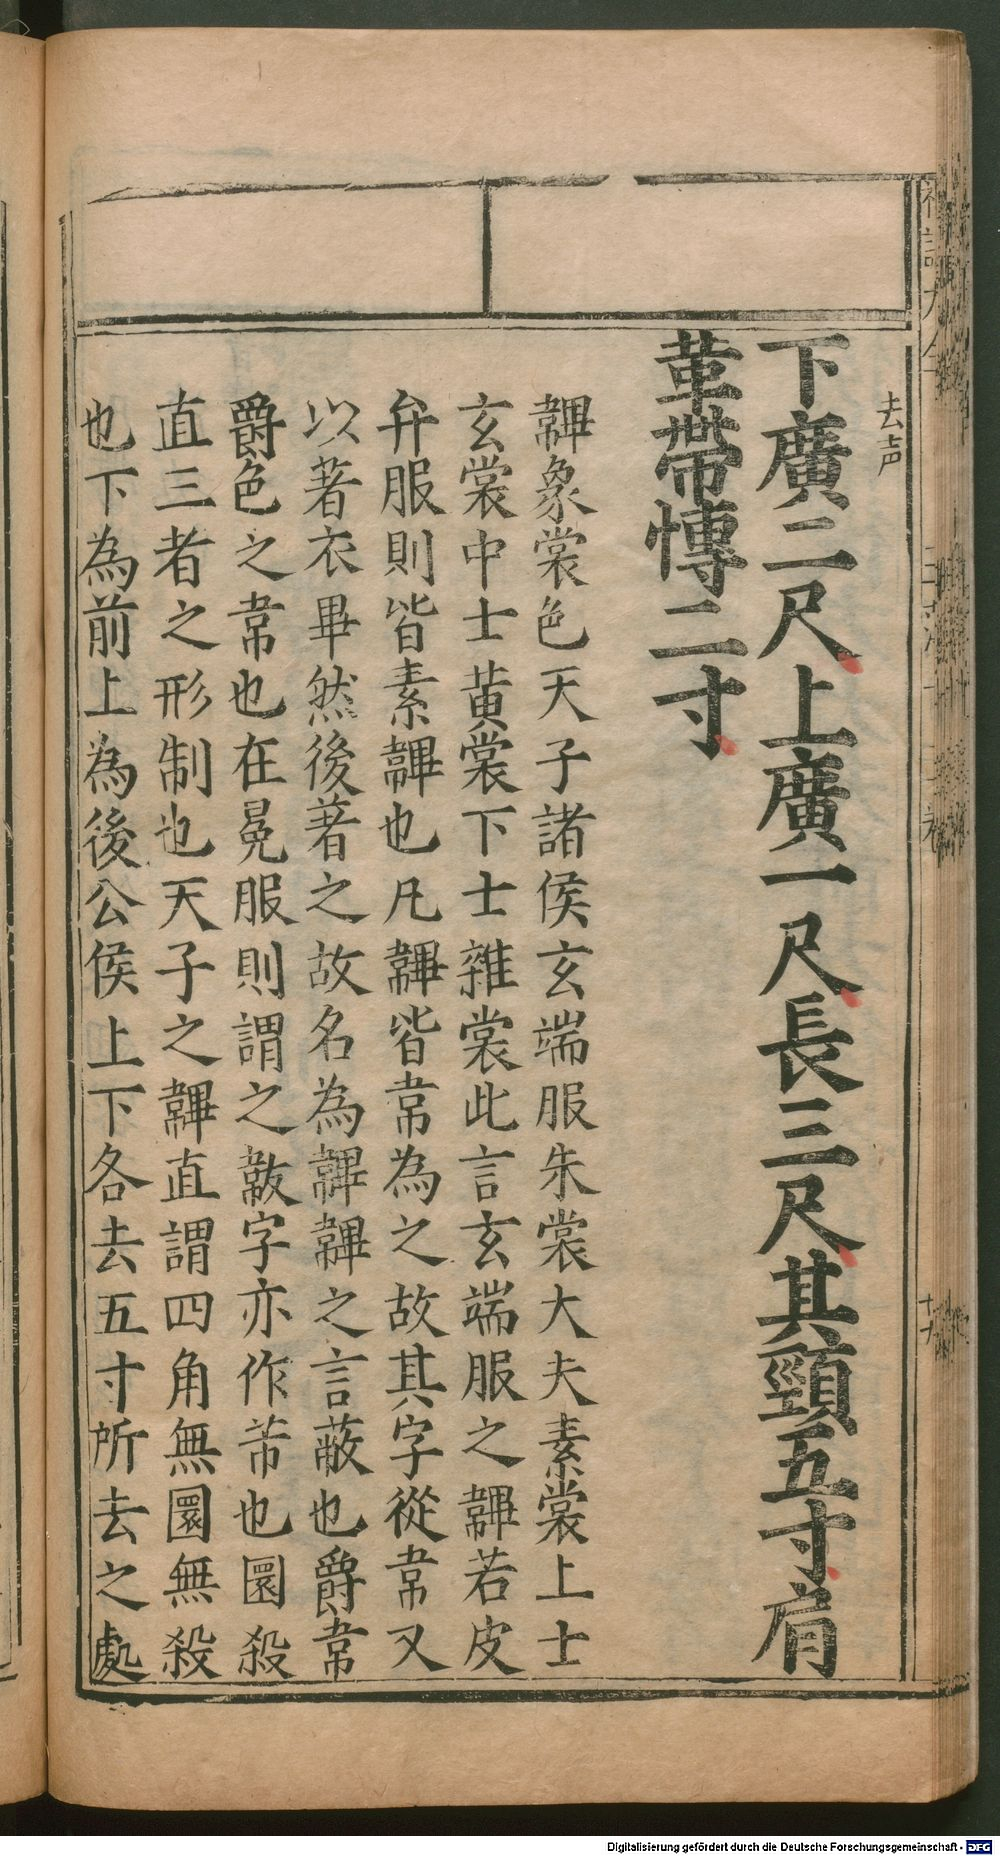 去声
下廣二尺上廣一尺長三尺其頸五寸肩
革帶愽二寸
韠象裳色天子諸侯玄端服朱裳大夫素裳上士
玄裳中士黄裳下士雜裳此言玄端服之韠若皮
弁服則皆素韠也凡韠皆韋為之故其字從韋又
以著衣畢然後著之故名為韠韠之言蔽也爵韋
爵色之韋也在冕服則謂之韍字亦作芾也圜殺
直三者之形制也天子之韠直謂四角無圜無殺
也下為前上為後公侯上下各去五寸所去之處
十九
Digitalisierung gefördert durch die Deutsche Forschungsgemeinschaft - DFG